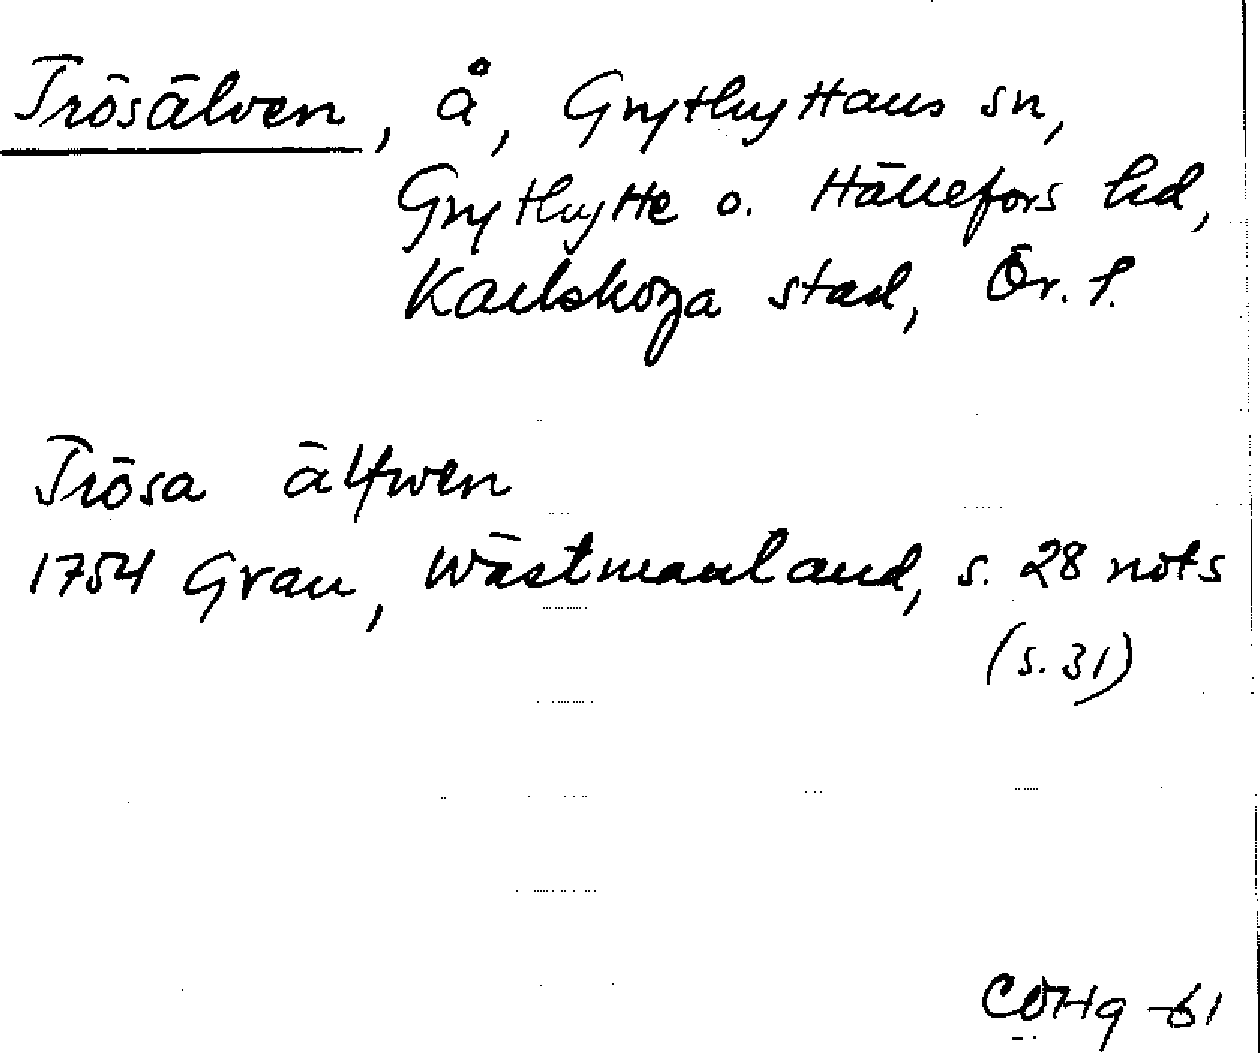 Trösälven, å, Grythyttans sn,
Grythytte o. Hällefors hd,
Karlskoga stad, Ör. l.
Trösa älfwen
1754 Grau, Wästmanland, s. 28 nots
(s. 31)
CÖHg -61